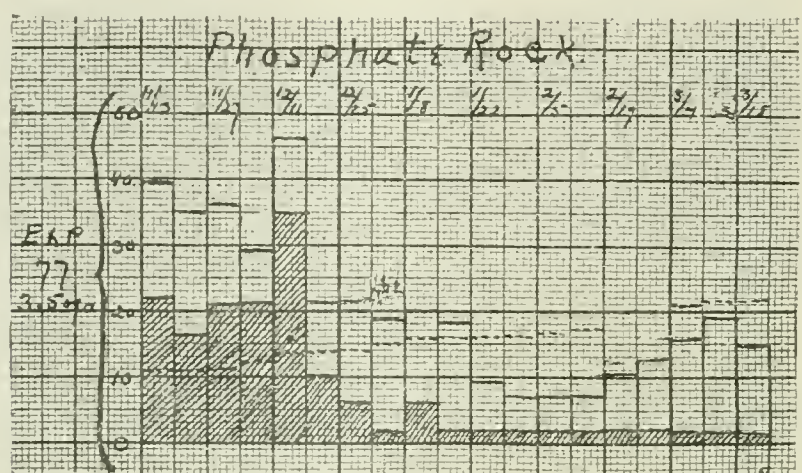 Phosphate Rock.
11/13 11/27 12/11 12/25 1/8 1/22 2/5 2/19 3/4 3/18
50
40
30
Exp
77
20
10
0